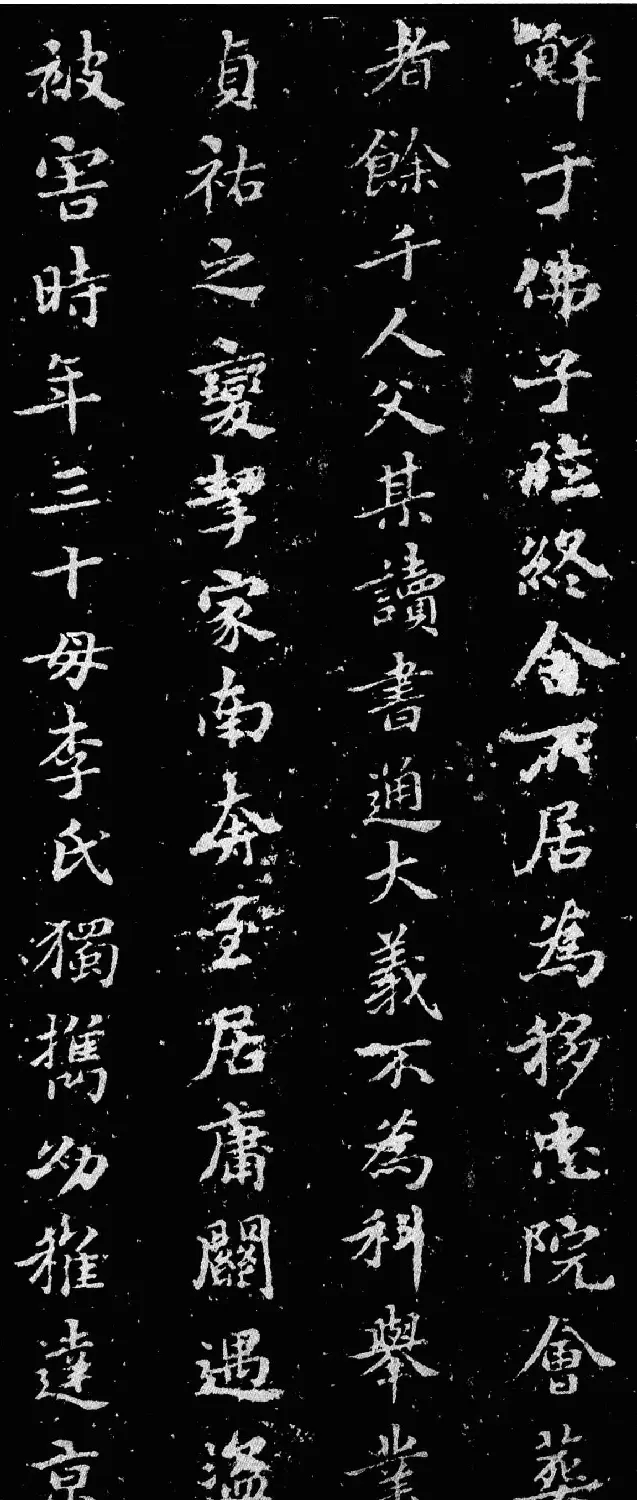 鮮于佛子臨終舍所居為移忠院會葬
者餘千人父某讀書通大義不為科舉業
貞祐之變挈家南奔至居庸關遇盜
被害時年三十母李氏獨攜幼稚達京